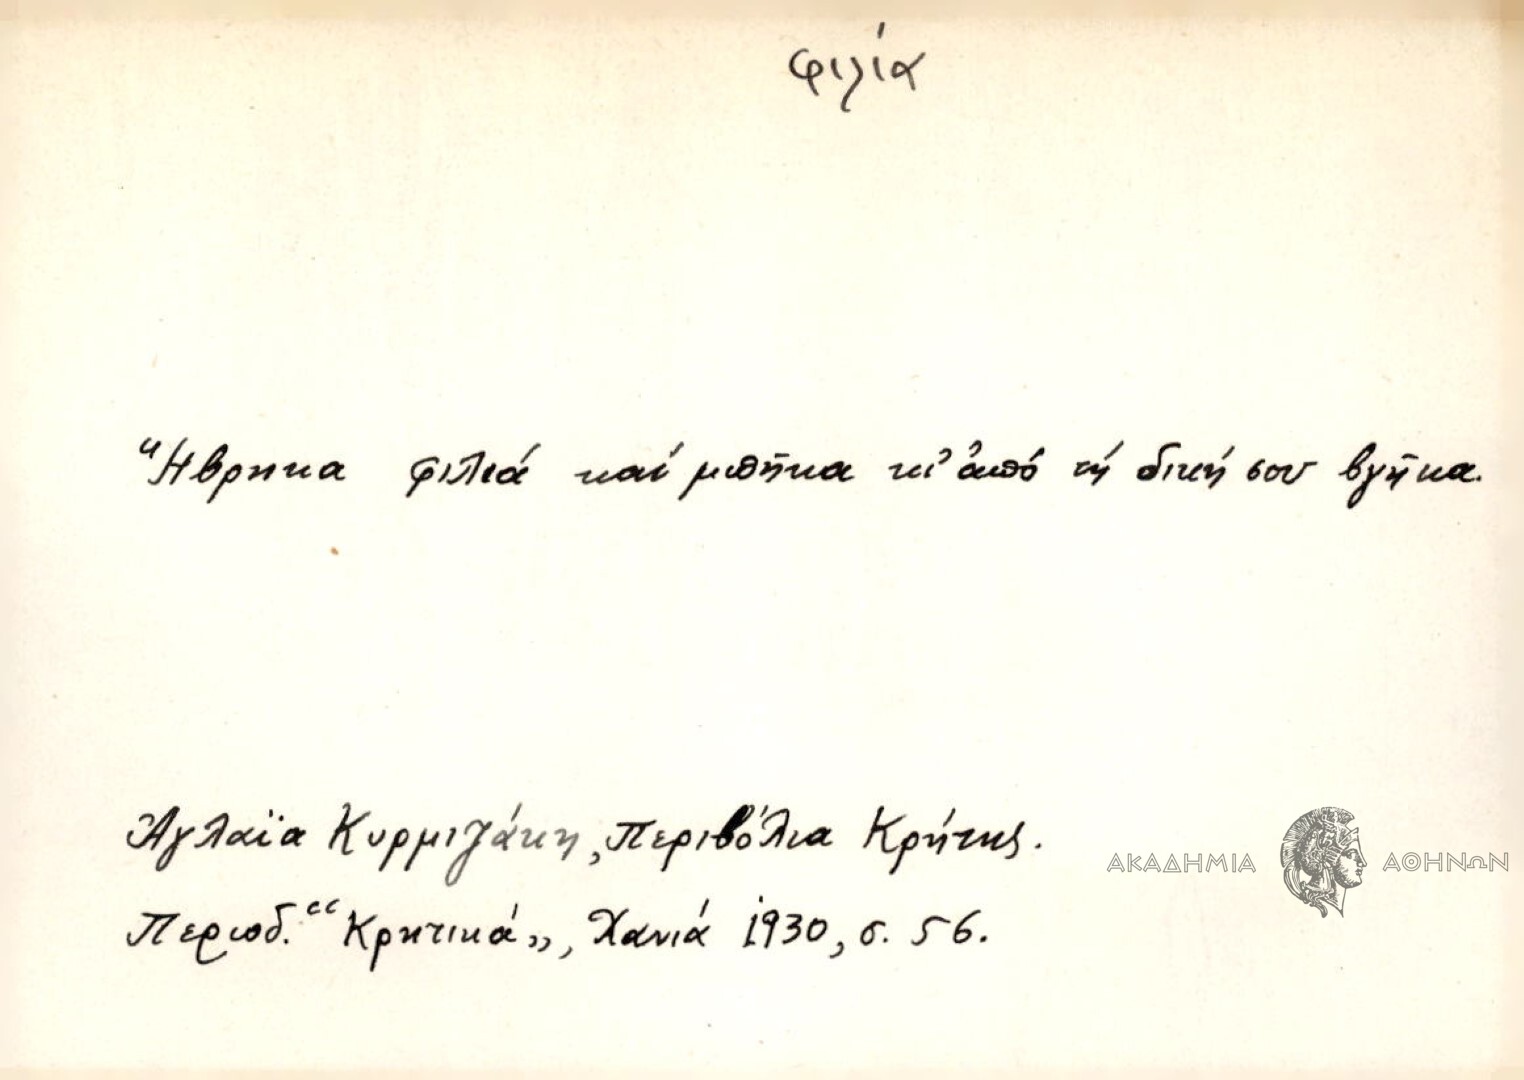 φιλία
Ἤβρηκα φιλιά καί μπῆκα κι' ἀπό τή δική σου βγῆκα.
Ἀγλαΐα Κυρμιζάκη, Περιβόλια Κρήτης.
Περιοδ. “Κρητικά„, Χανιά 1930, σ. 56.
ΑΚΑΔΗΜΙΑ ΑΘΗΝΩΝ